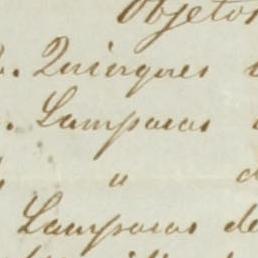 Objetos
. Quinques
. Lamparas
" d
Lamparas de